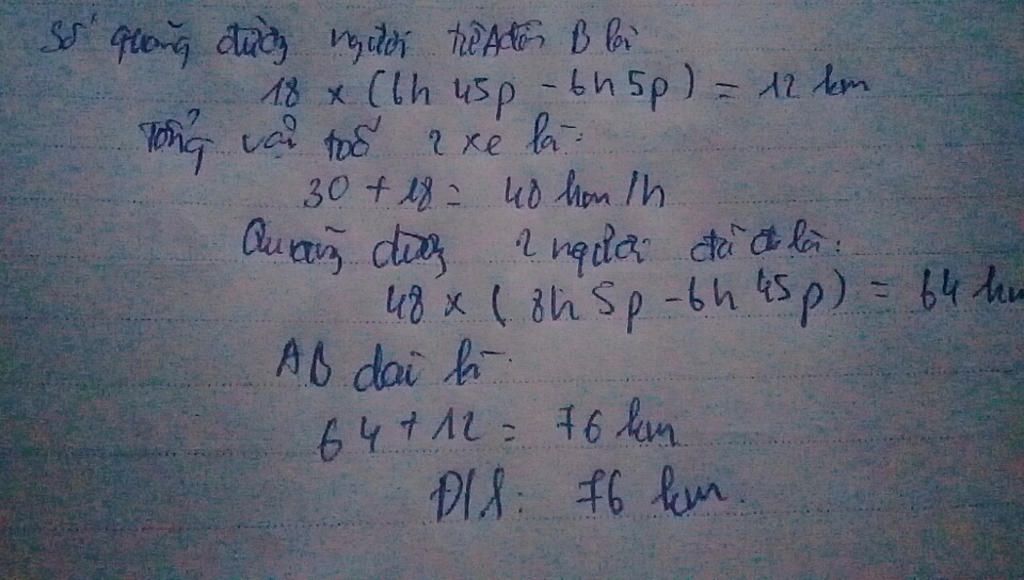 Số quãng đường người từ A đến B là
18 x (6h 45p - 6h 5p) = 12 km
Tổng vận tốc 2 xe là:
30 + 18 = 48 km/h
Quãng đường 2 người đi là:
48 x (8h 5p - 6h 45p) = 64 km
AB dài là
64 + 12 = 76 km
Đ/S: 76 km.